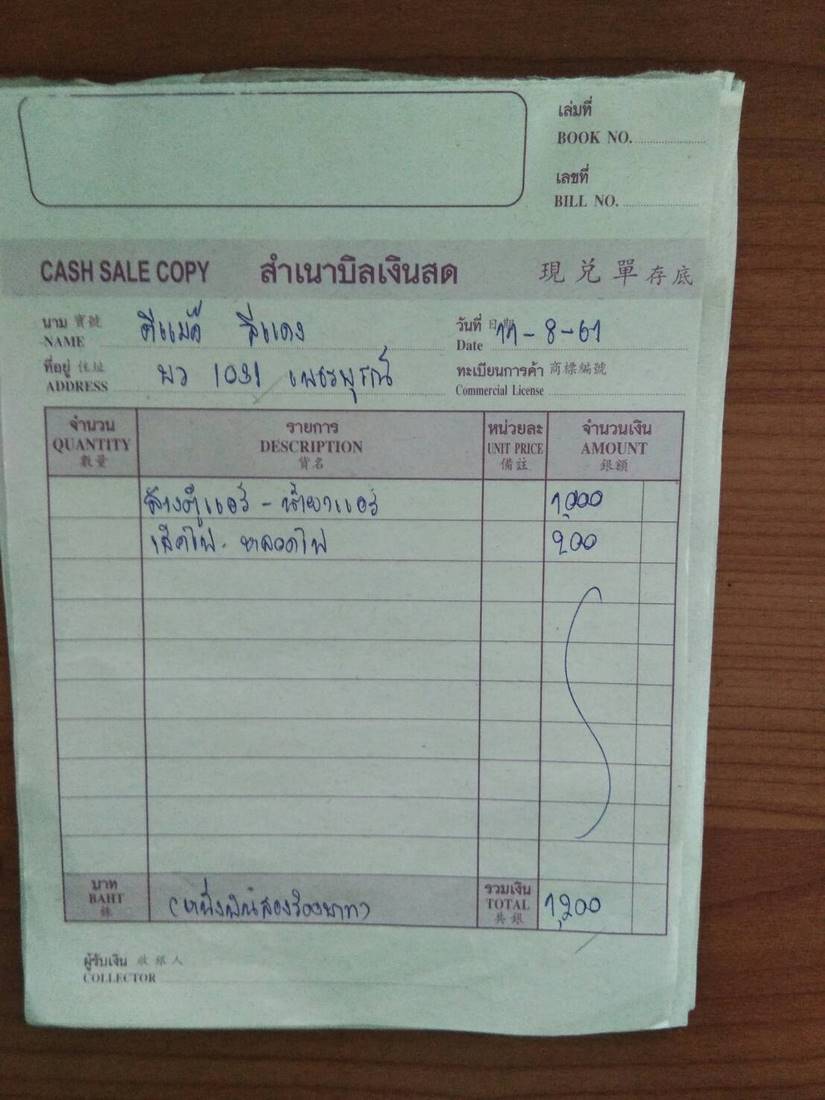 เล่มที่
BOOK NO.
เลขที่
BILL NO.
CASH SALE COPY สำเนาบิลเงินสด 現兌單存底
นาม 寶號
NAME ดีแม๊ค สีแดง
วันที่ 日期
Date 11-8-61
ที่อยู่ 住址
ADDRESS บว 1031 เพชรบูรณ์
ทะเบียนการค้า 商標編號
Commercial License
จำนวน รายการ หน่วยละ จำนวนเงิน
QUANTITY DESCRIPTION UNIT PRICE AMOUNT
數量 貨名 備註 銀額
ล้างตู้แอร์ - น้ำยาแอร์ 1,000
เช็คไฟ - หลอดไฟ 200
บาท รวมเงิน
BAHT (หนึ่งพันสองร้อยบาท) TOTAL 1,200
銖 共銀
ผู้รับเงิน 收銀人
COLLECTOR